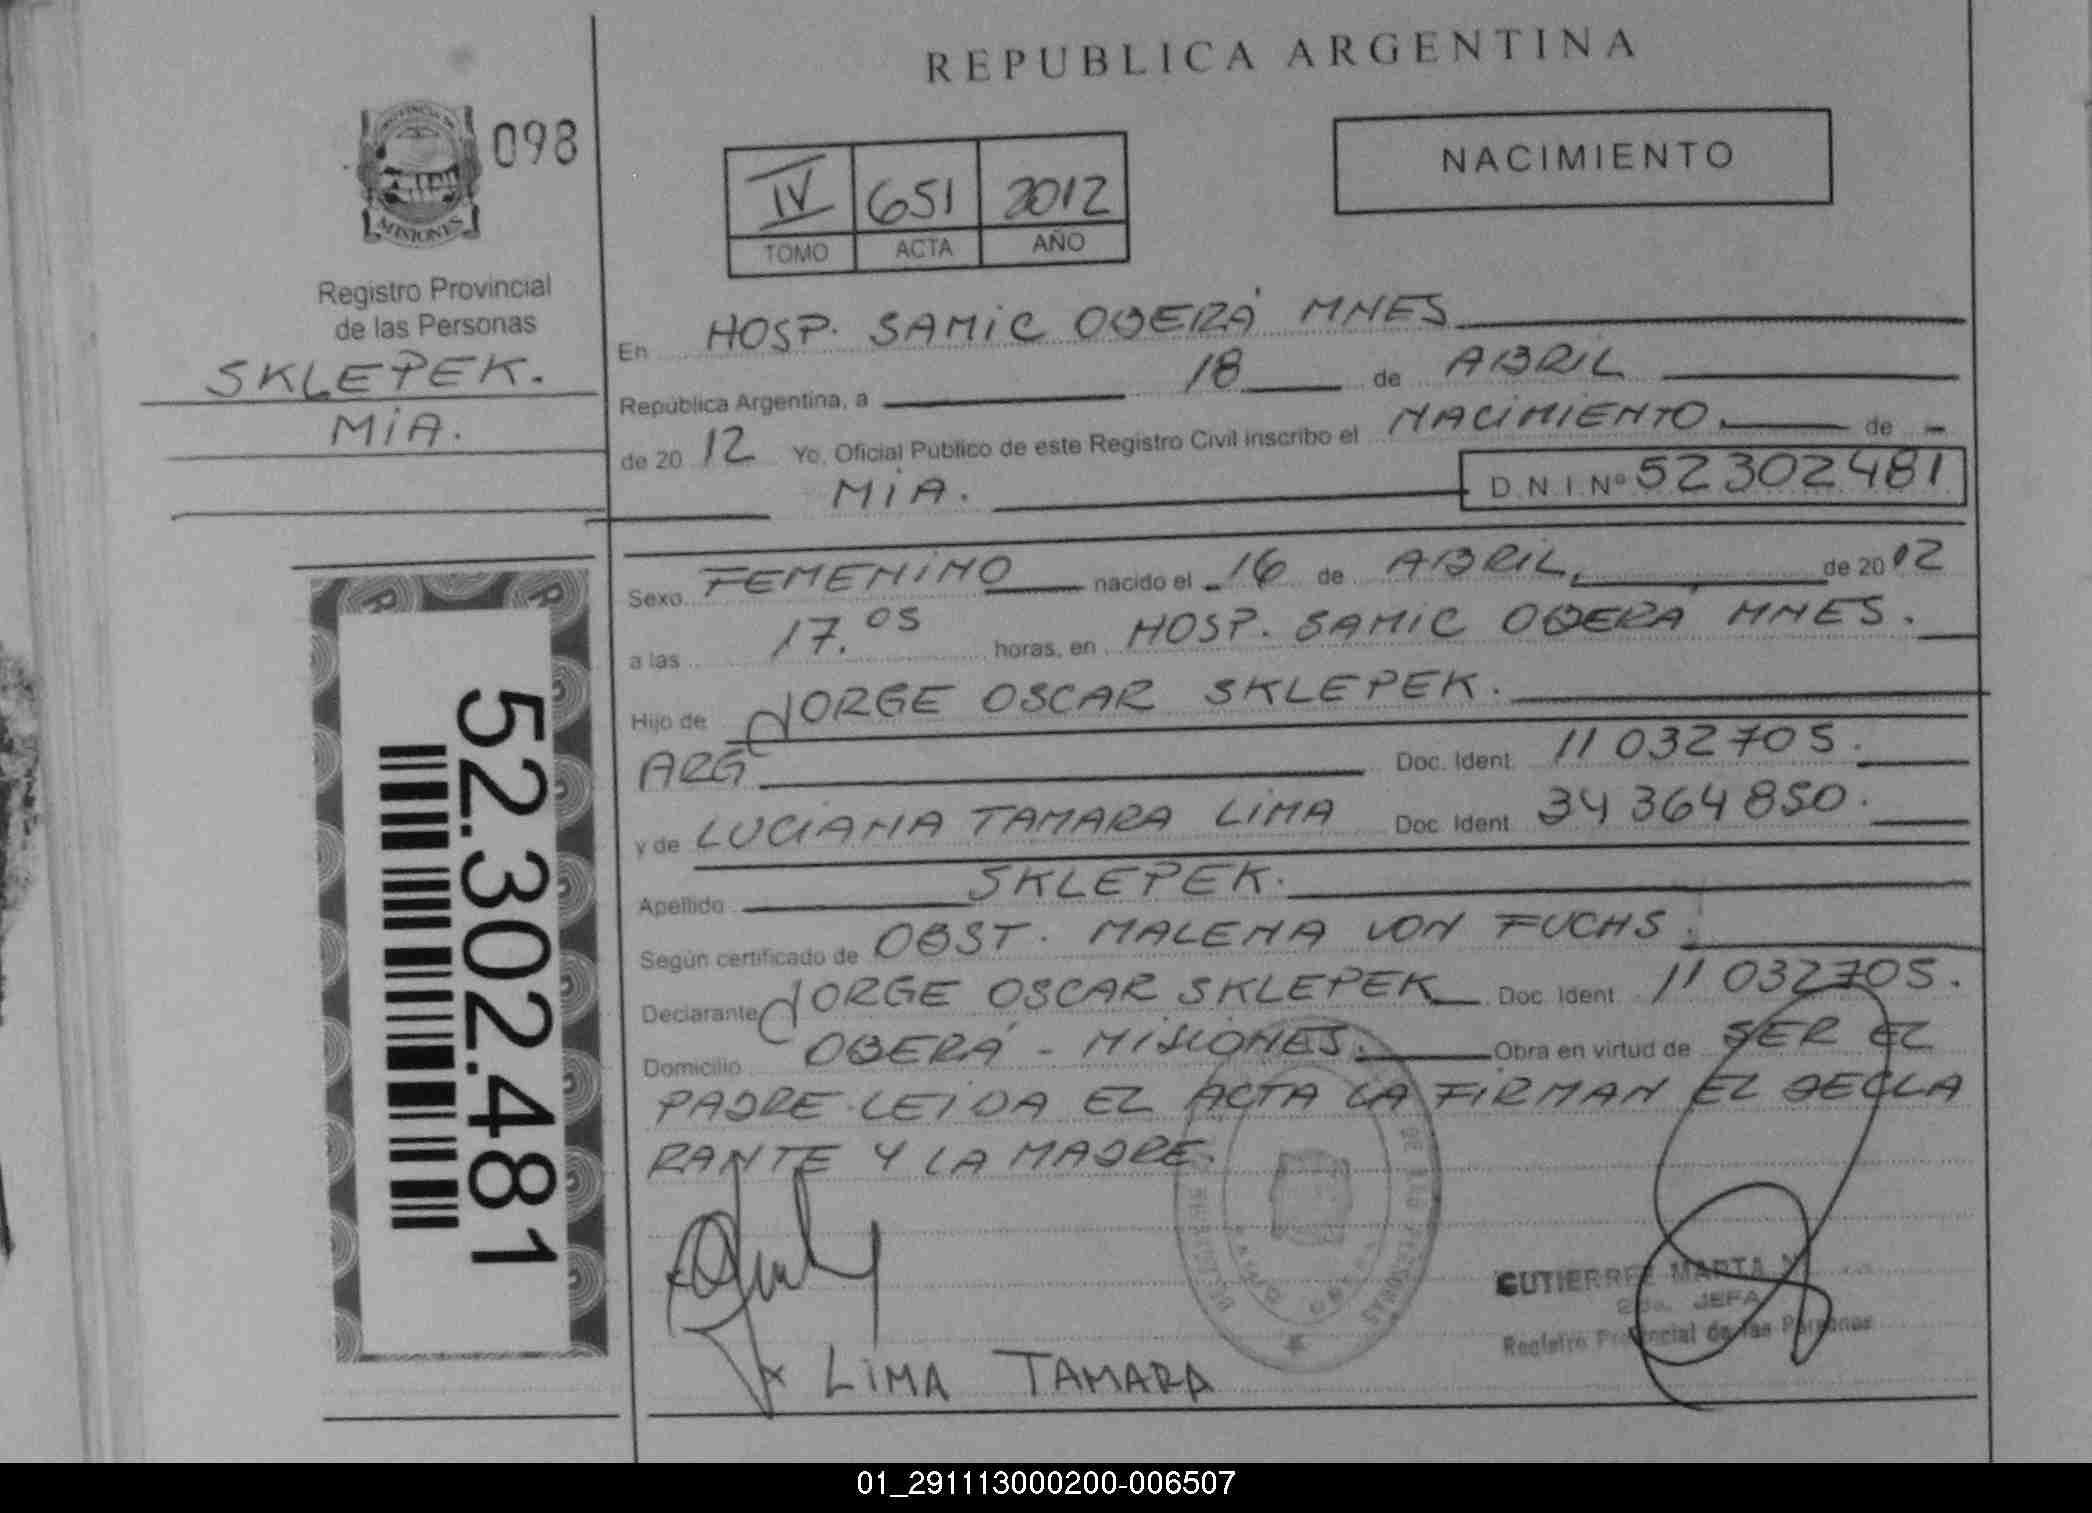 REPUBLICA ARGENTINA
098
MISIONES
NACIMIENTO
IV 651 2012
TOMO ACTA AÑO
Registro Provincial
de las Personas
SKLEPEK.
MIA.
En HOSP. SAMIC OBERÁ MNES
República Argentina, a 18 de ABRIL
de 20 12 Yo, Oficial Público de este Registro Civil inscribo el NACIMIENTO de
MIA. D.N.I.Nº 52302481
Sexo FEMENINO nacido el 16 de ABRIL, de 20 12
a las 17.05 horas, en HOSP. SAMIC OBERÁ MNES.
Hijo de JORGE OSCAR SKLEPEK.
ARG Doc. Ident. 11 032705.
y de LUCIANA TAMARA LIMA Doc. Ident. 34 364 850.
Apellido SKLEPEK.
Según certificado de OBST. MALENA VON FUCHS.
Declarante JORGE OSCAR SKLEPEK Doc. Ident. 11 032705.
Domicilio OBERÁ - MISIONES. Obra en virtud de SER EL
PADRE. LEIDA EL ACTA LA FIRMAN EL DECLA
RANTE Y LA MADRE.
52.302.481
GUTIERREZ MARTA
JEFA
Registro Provincial de las Personas
LIMA TAMARA
01_291113000200-006507